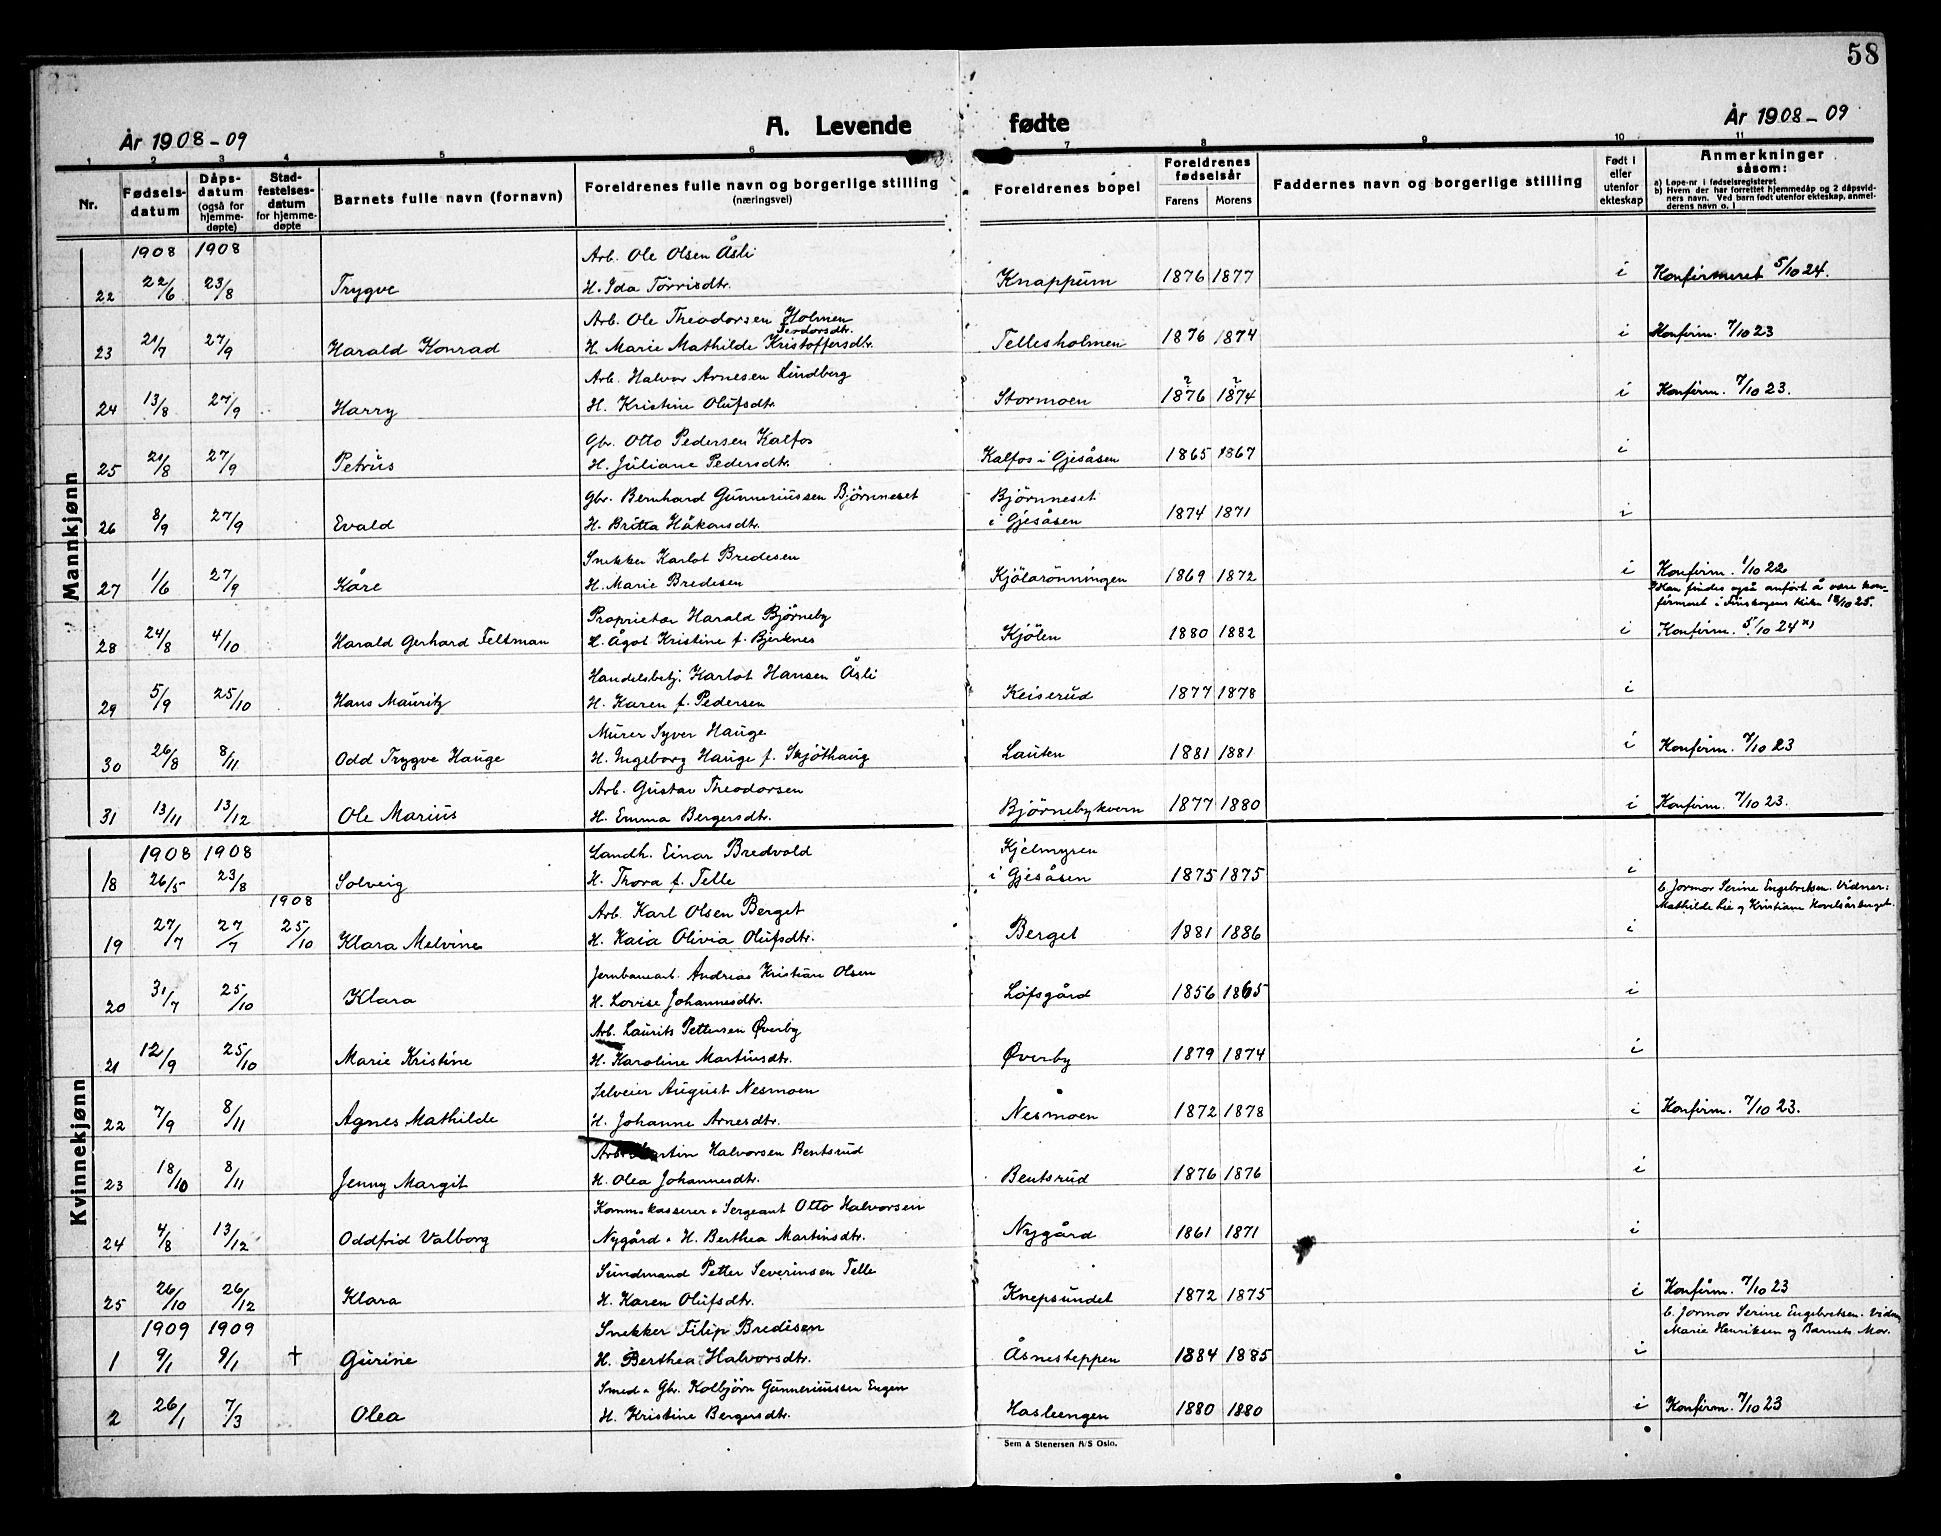 58
År 1908-09 A. Levende fødte År 1908-09
1 2 3 4 5 6 7 8 9 10 11
Nr. Fødsels-datum Dåps-datum (også for hjemme-døpte) Stad-festelses-datum for hjemme-døpte Barnets fulle navn (fornavn) Foreldrenes fulle navn og borgerlige stilling (næringsvei) Foreldrenes bopel Foreldrenes fødselsår Farens Morens Faddernes navn og borgerlige stilling Født i eller utenfor ekteskap Anmerkninger såsom:
a) Løpe-nr i fødselsregisteret
b) Hvem der har forrettet hjemmedåp og 2 dåpsvid-
ners navn. Ved barn født utenfor ekteskap, anmel-
derens navn o. l
Mannkjønn
1908 1908 Arb. Ole Olsen Åsli
22 22/6 23/8 Trygve H. Ida Törrisdtr. Knappum 1876 1877 i Konfirmeret 5/10 24.
Arb. Ole Theodorsen Holmen
Teodorsdtr.
23 21/7 27/9 Harald Konrad H. Marie Mathilde Kristoffersdtr. Tellesholmen 1876 1874 i Konfirm. 7/10 23
Arb. Halvor Arnesen Lindberg ? ?
24 13/8 27/9 Harry H. Kristine Olufsdtr. Stormoen 1876 1874 i Konfirm. 7/10 23.
Gbr. Otto Pedersen Kalfos
25 21/8 27/9 Petrus H. Juliane Pedersdtr. Kalfos i Gjesåsen 1865 1867 i
Gbr. Bernhard Gunneriussen Björnneset Björnneset
26 8/9 27/9 Evald H. Britta Håkonsdtr. i Gjesåsen 1874 1871 i
Snekker Karlot Bredesen
27 1/6 27/9 Kåre H. Marie Bredesen Kjölarönningen 1869 1872 i Konfirm. 1/10 22
x) Han findes også anfört å være kon-
firmeret i Finskogens kirke 18/10 25.
Proprietær Harald Björneby
28 24/8 4/10 Harald Gerhard Feltman H. Ågot Kristine f. Bjerknes Kjölen 1880 1882 i Konfirm. 5/10 24 x)
Handelsbetj. Karlot Hansen Åsli
29 5/9 25/10 Hans Mauritz H. Karen f. Pedersen Keiserud 1877 1878 i
Murer Syver Hauge
30 26/8 8/11 Odd Trygve Hauge H. Ingeborg Hauge f. Skjöthaug Lauten 1881 1881 i Konfirm. 7/10 23
Arb. Gustav Theodorsen
31 13/11 13/12 Ole Marius H. Emma Bergersdtr. Björnebykvern 1877 1880 i Konfirm. 7/10 23.
Kvinnekjønn
1908 1908 Landh. Einar Bredvold Kjelmyren
18 26/5 23/8 Solveig H. Thora f. Telle i Gjesåsen 1875 1875 i
1908 Arb. Karl Olsen Berget b. Jormor Serine Engebretsen. Vidner:
Mathilde Lie og Kristiane Hovelsårberget.
19 27/7 27/7 25/10 Klara Melvine H. Kaia Olivia Olufsdtr. Berget 1881 1886 i
Jernbanearb. Andreas Kristian Olsen
20 31/7 25/10 Klara H. Lovise Johannesdtr. Löfsgård 1856 1865 i
Arb. Laurits Pettersen Øverby
21 12/9 25/10 Marie Kristine H. Karoline Martinsdtr. Øverby 1879 1874 i
Selveier August Nesmoen
22 7/9 8/11 Agnes Mathilde H. Johanne Arnesdtr. Nesmoen 1872 1878 i Konfirm. 7/10 23.
Arb. Martin Halvorsen Bentsrud
23 18/10 8/11 Jenny Margit H. Olea Johannesdtr. Bentsrud 1876 1876 i
Kommekasserer & Sergeant Otto Halvorsen
24 4/8 13/12 Oddfrid Valborg Nygård & H. Berthea Martinsdtr. Nygård 1861 1871 i
Sundmand Petter Severinsen Telle
25 26/10 26/12 Klara H. Karen Olufsdtr. Knepsundet 1872 1875 i Konfirm. 7/10 23
1909 1909 Snekker Filip Bredesen b. Jormor Serine Engebretsen. Vidn.
Marie Henriksen og Barnets Mor.
1 9/1 9/1 † Gurine H. Berthea Halvorsdtr. Åsnesteppen 1884 1885 i
Smed & Gbr. Kolbjörn Gunneriussen Engen
2 26/1 7/3 Olea H. Kristine Bergersdtr. Hasleengen 1880 1880 i Konfirm. 7/10 23
Sem & Stenersen A/S Oslo.